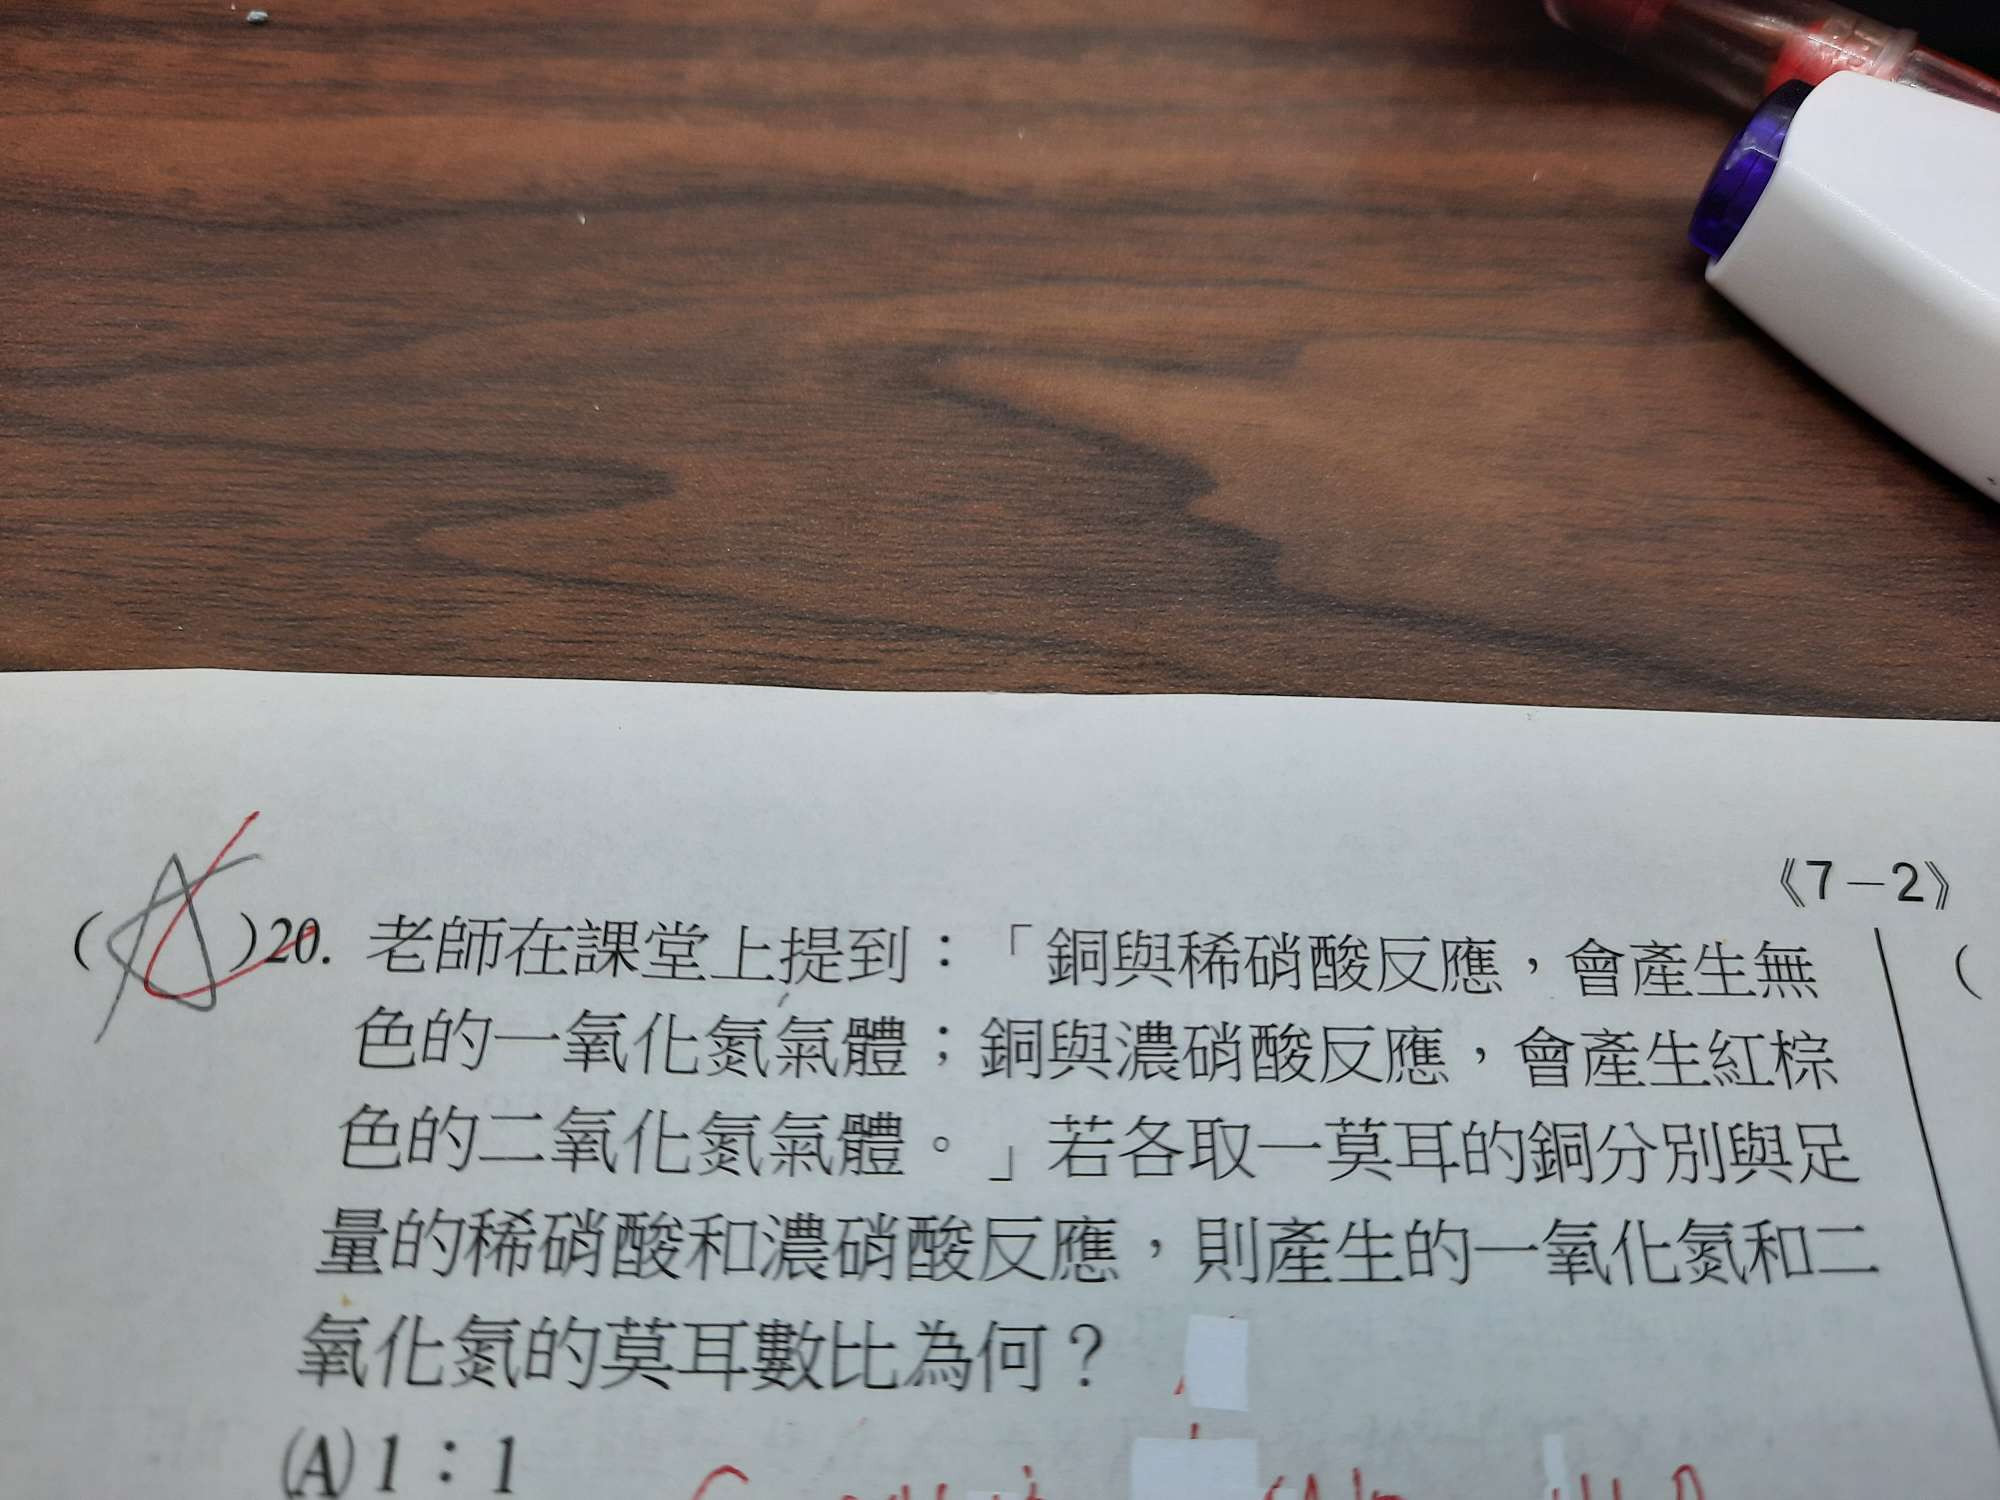 《7－2》
( A )20. 老師在課堂上提到：「銅與稀硝酸反應，會產生無
色的一氧化氮氣體；銅與濃硝酸反應，會產生紅棕
色的二氧化氮氣體。」若各取一莫耳的銅分別與足
量的稀硝酸和濃硝酸反應，則產生的一氧化氮和二
氧化氮的莫耳數比為何？
(A) 1：1
(